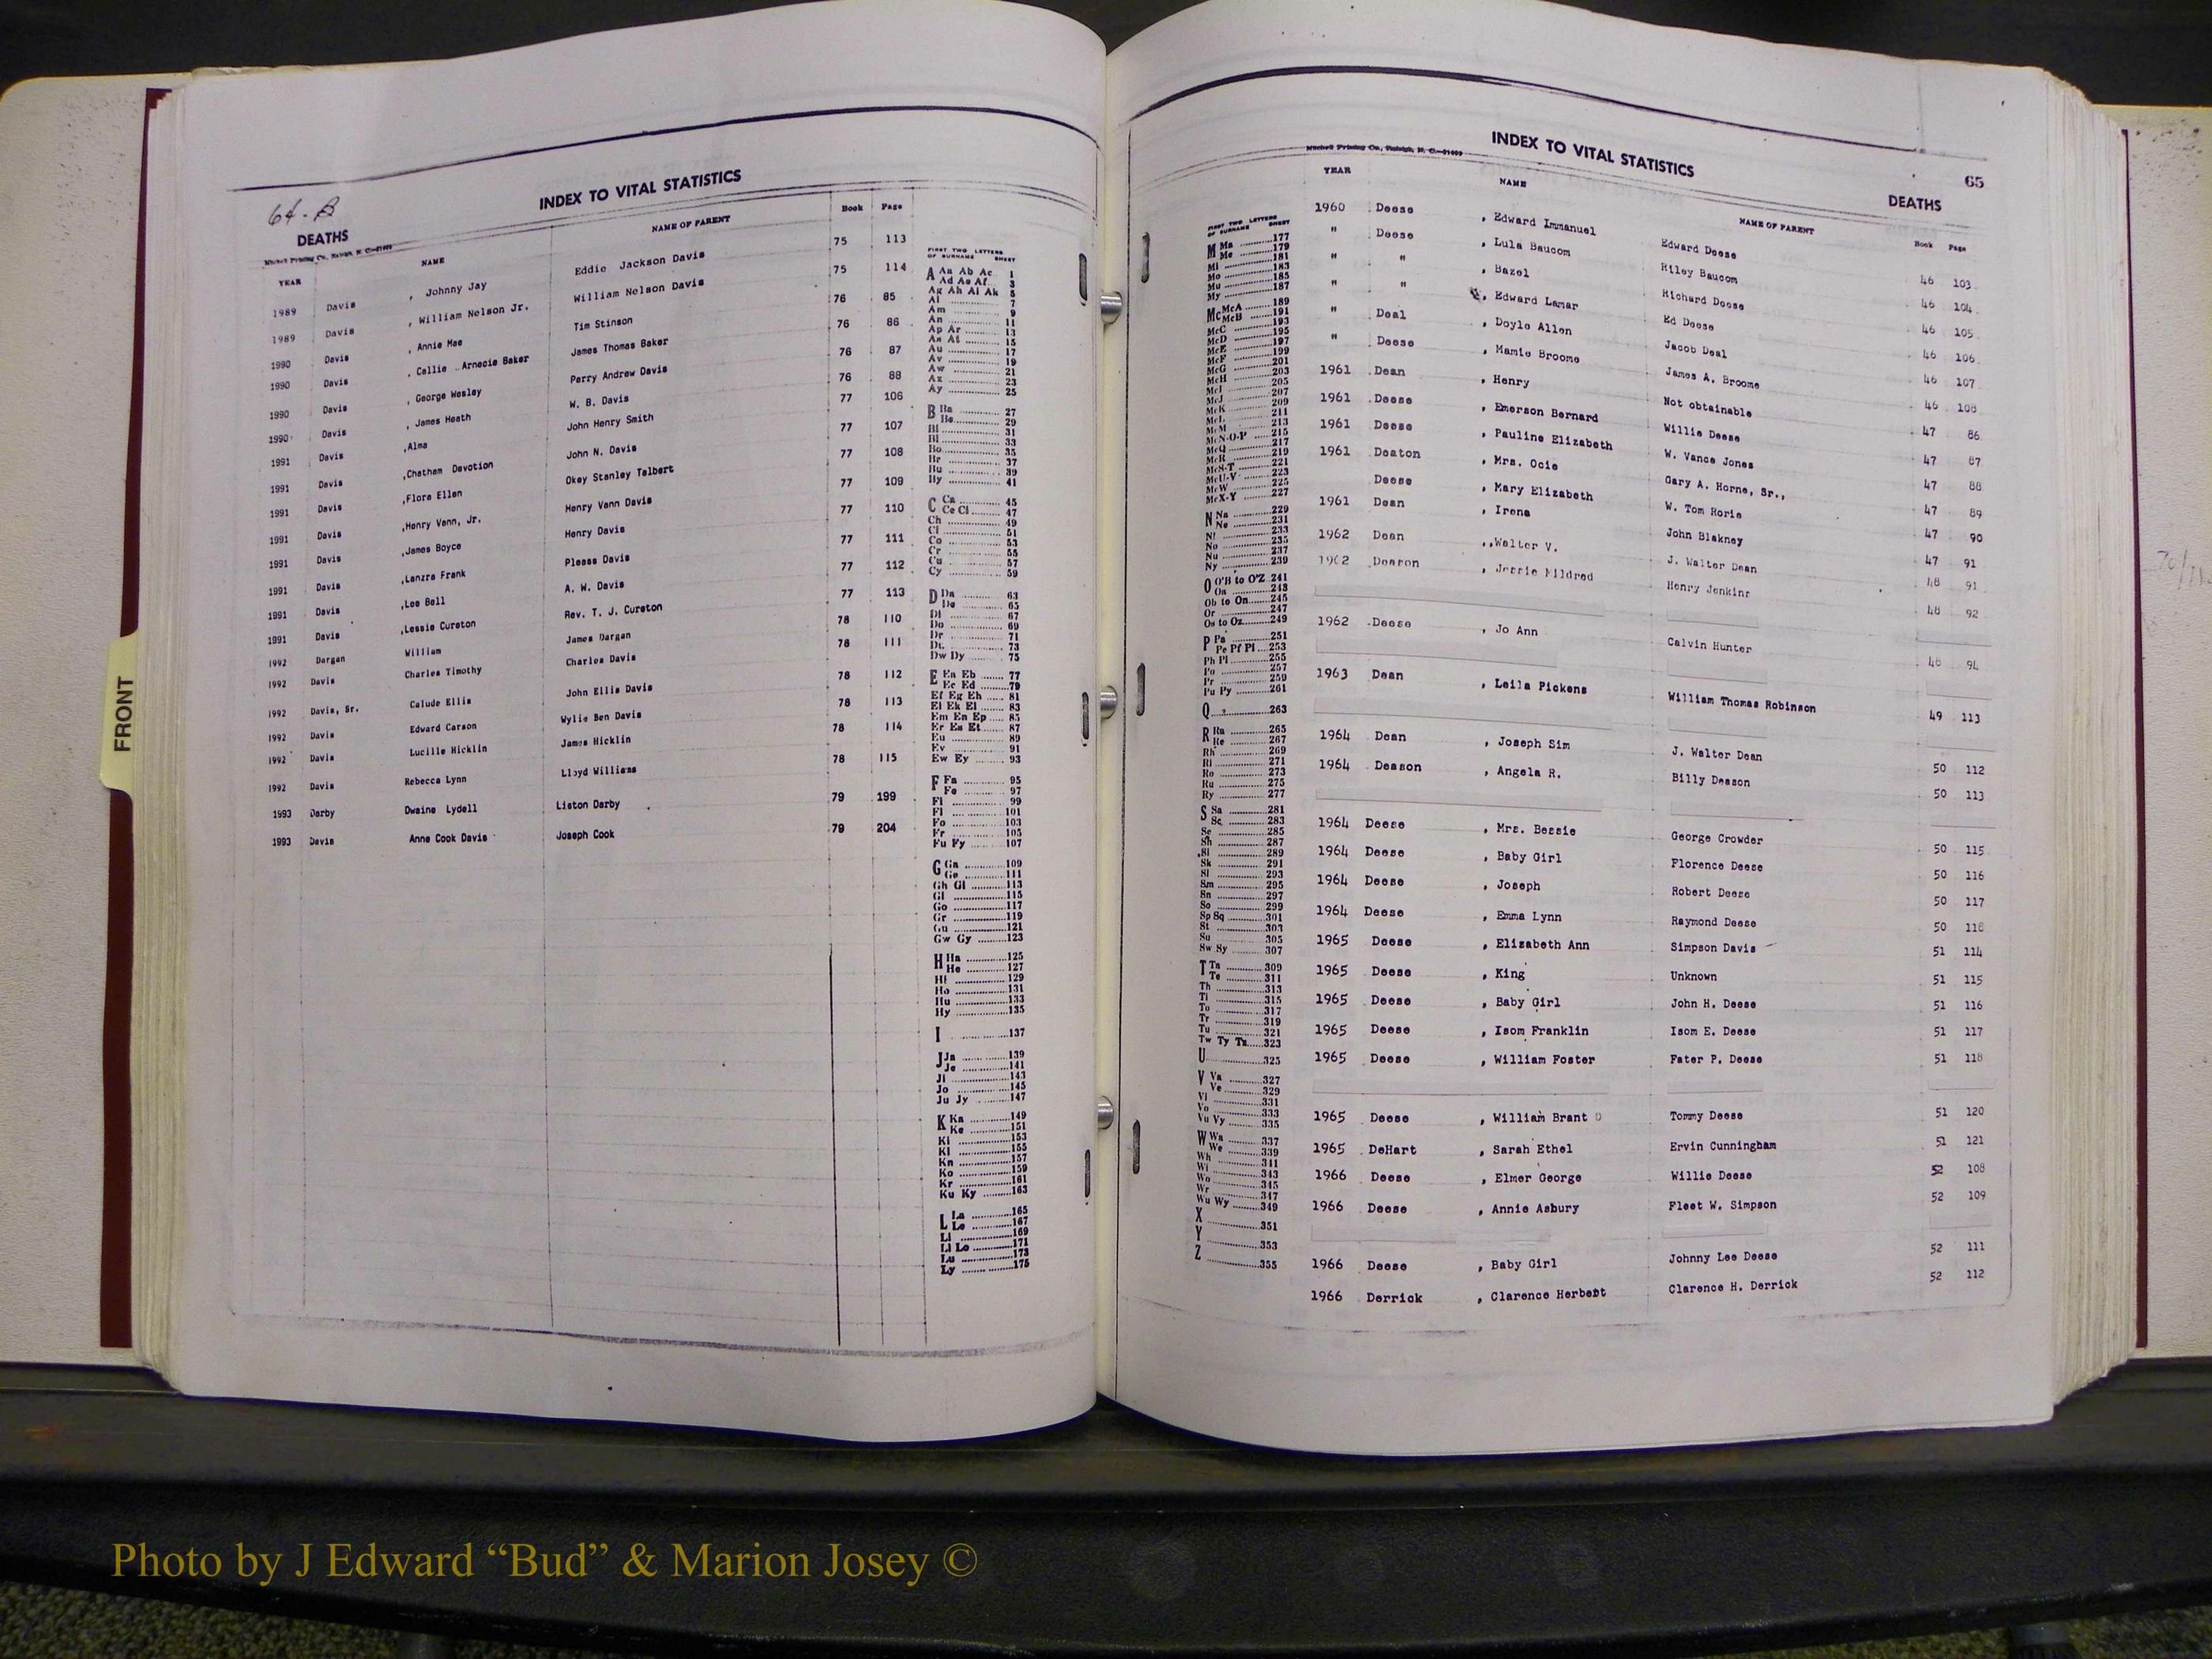 64-B
INDEX TO VITAL STATISTICS
DEATHS
YEAR NAME NAME OF PARENT Book Page
1989 Davis , Johnny Jay Eddie Jackson Davis 75 113
1989 Davis , William Nelson Jr. William Nelson Davis 75 114
1990 Davis , Annie Mae Tim Stinson 76 85
1990 Davis , Callie Arnecie Baker James Thomas Baker 76 86
1990 Davis , George Wesley Perry Andrew Davis 76 87
1990 Davis , James Heath W. B. Davis 76 88
1991 Davis ,Alma John Henry Smith 77 106
1991 Davis ,Chatham Devotion John N. Davis 77 107
1991 Davis ,Flora Ellen Okey Stanley Talbert 77 108
1991 Davis ,Henry Vann, Jr. Henry Vann Davis 77 109
1991 Davis ,James Boyce Henry Davis 77 110
1991 Davis ,Lanzra Frank Pleass Davis 77 111
1991 Davis ,Lee Bell A. W. Davis 77 112
1991 Davis ,Lessie Cureton Rev. T. J. Cureton 77 113
1992 Dargan William James Dargan 78 110
1992 Davis Charles Timothy Charles Davis 78 111
1992 Davis, Sr. Calude Ellis John Ellis Davis 78 112
1992 Davis Edward Carson Wylie Ben Davis 78 113
1992 Davis Lucille Hicklin James Hicklin 78 114
1992 Davis Rebecca Lynn Lloyd Williams 78 115
1993 Darby Dwaine Lydell Liston Darby 79 199
1993 Davis Anne Cook Davis Joseph Cook 79 204
FIRST TWO LETTERS
OF SURNAME SHEET
A Aa Ab Ac 1
Ad Ae Af 3
Ag Ah Ai Ak 5
Al 7
Am 9
An 11
Ap Ar 13
As At 15
Au 17
Av 19
Aw 21
Ax 23
Ay 25
B Ba 27
Be 29
Bi 31
Bl 33
Bo 35
Br 37
Bu 39
By 41
C Ca 45
Ce Ci 47
Ch 49
Cl 51
Co 53
Cr 55
Cu 57
Cy 59
D Da 63
De 65
Di 67
Do 69
Dr 71
Du 73
Dw Dy 75
E Ea Eb 77
Ec Ed 79
Ef Eg Eh 81
Ei Ek El 83
Em En Ep 85
Er Es Et 87
Eu 89
Ev 91
Ew Ey 93
F Fa 95
Fe 97
Fi 99
Fl 101
Fo 103
Fr 105
Fu Fy 107
G Ga 109
Ge 111
Gh Gi 113
Gl 115
Go 117
Gr 119
Gu 121
Gw Gy 123
H Ha 125
He 127
Hi 129
Ho 131
Hu 133
Hy 135
I 137
J Ja 139
Je 141
Ji 143
Jo 145
Ju Jy 147
K Ka 149
Ke 151
Ki 153
Kl 155
Kn 157
Ko 159
Kr 161
Ku Ky 163
L La 165
Le 167
Li 169
Ll Lo 171
Lu 173
Ly 175
INDEX TO VITAL STATISTICS
Mitchell Printing Co., Raleigh, N. C.
65
DEATHS
FIRST TWO LETTERS
OF SURNAME SHEET
M Ma 177
Me 179
Mi 181
Mo 183
Mu 185
My 187
Mc McA 189
McB 191
McC 193
McD 195
McE 197
McF 199
McG 201
McH 203
McI 205
McJ 207
McK 209
McL 211
McM 213
McN-O-P 215
McQ 217
McR 219
McS-T 221
McU-V 223
McW 225
McX-Y 227
N Na 229
Ne 231
Ni 233
No 235
Nu 237
Ny 239
O O'B to O'Z 241
Oa 243
Ob to On 245
Or 247
Os to Oz 249
P Pa 251
Pe Pf Pi 253
Ph Pl 255
Po 257
Pr 259
Pu Py 261
Q 263
R Ra 265
Re 267
Rh 269
Ri 271
Ro 273
Ru 275
Ry 277
S Sa 281
Sc 283
Se 285
Sh 287
Si 289
Sk 291
Sl 293
Sm 295
Sn 297
So 299
Sp Sq 301
St 303
Su 305
Sw Sy 307
T Ta 309
Te 311
Th 313
Ti 315
To 317
Tr 319
Tu 321
Tw Ty Tz 323
U 325
V Va 327
Ve 329
Vi 331
Vo 333
Vu Vy 335
W Wa 337
We 339
Wh 341
Wi 343
Wo 345
Wr 347
Wu Wy 349
X 351
Y 353
Z 355
YEAR NAME NAME OF PARENT Book Page
1960 Deese , Edward Immanuel Edward Deese 46 103
" Deese , Lula Baucom Riley Baucom 46 104
" " , Bazel Richard Deese 46 105
" " , Edward Lamar Ed Deese 46 106
" Deal , Doyle Allen Jacob Deal 46 107
" Deese , Mamie Broome James A. Broome 46 108
1961 Dean , Henry Not obtainable 47 86
1961 Deese , Emerson Bernard Willie Deese 47 87
1961 Deese , Pauline Elizabeth W. Vance Jones 47 88
1961 Deaton , Mrs. Ocie Gary A. Horne, Sr., 47 89
Deese , Mary Elizabeth W. Tom Horie 47 90
1961 Dean , Irena John Blakney 47 91
1962 Dean , Walter V. J. Walter Dean 48 91
1962 Deason , Jessie Mildred Henry Jenkins 48 92
1962 Deese , Jo Ann Calvin Hunter 48 94
1963 Dean , Leila Pickens William Thomas Robinson 49 113
1964 Dean , Joseph Sim J. Walter Dean 50 112
1964 Deason , Angela R. Billy Deason 50 113
1964 Deese , Mrs. Bessie George Crowder 50 115
1964 Deese , Baby Girl Florence Deese 50 116
1964 Deese , Joseph Robert Deese 50 117
1964 Deese , Emma Lynn Raymond Deese 50 118
1965 Deese , Elizabeth Ann Simpson Davis 51 114
1965 Deese , King Unknown 51 115
1965 Deese , Baby Girl John H. Deese 51 116
1965 Deese , Isom Franklin Isom E. Deese 51 117
1965 Deese , William Foster Fater P. Deese 51 118
1965 Deese , William Brant D Tommy Deese 51 120
1965 DeHart , Sarah Ethel Ervin Cunningham 51 121
1966 Deese , Elmer George Willie Deese 52 108
1966 Deese , Annie Asbury Fleet W. Simpson 52 109
1966 Deese , Baby Girl Johnny Lee Deese 52 111
1966 Derrick , Clarence Herbert Clarence H. Derrick 52 112
FRONT
Photo by J Edward “Bud” & Marion Josey ©